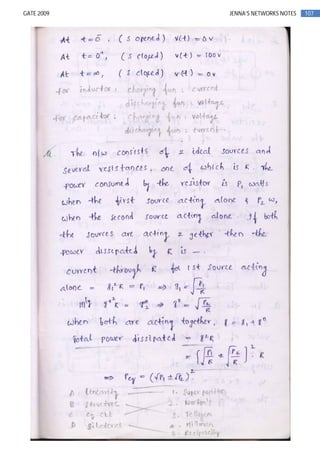 GATE 2009
JENNA'S NETWORKS NOTES 107
At t = 0⁻, ( S opened) v(t) = 0 v
At t = 0⁺, ( S closed) v(t) = 100 v
At t = ∞, ( S closed) v(t) = 0 v
for inductor : charging fun : current
discharging fun : voltage
for capacitor : charging fun : voltage
discharging fun : current
Q. The n/w consists of 2 ideal sources and
several resistances, one of which is R. The
power consumed by the resistor is P₁ watts
when the first source acting alone & P₂ w,
when the second source acting alone. If both
the sources are acting together then the
power dissipated by R is —.
current through R for 1st source acting
alone = I₁²R = P₁ ⇒ I₁ = √P₁/R
When both are acting together, I = I₁ +
Total power dissipated = I²R
= [√P₁/R ± √P₂/R]² · R
⇒ = (√P₁ ± √P₂)²
A Linearity 1. Super position
B Structure 2. Norton's
C Eq. ckt 3. Tellegen
D Bilateral 4. Millman
5. Reciprocity